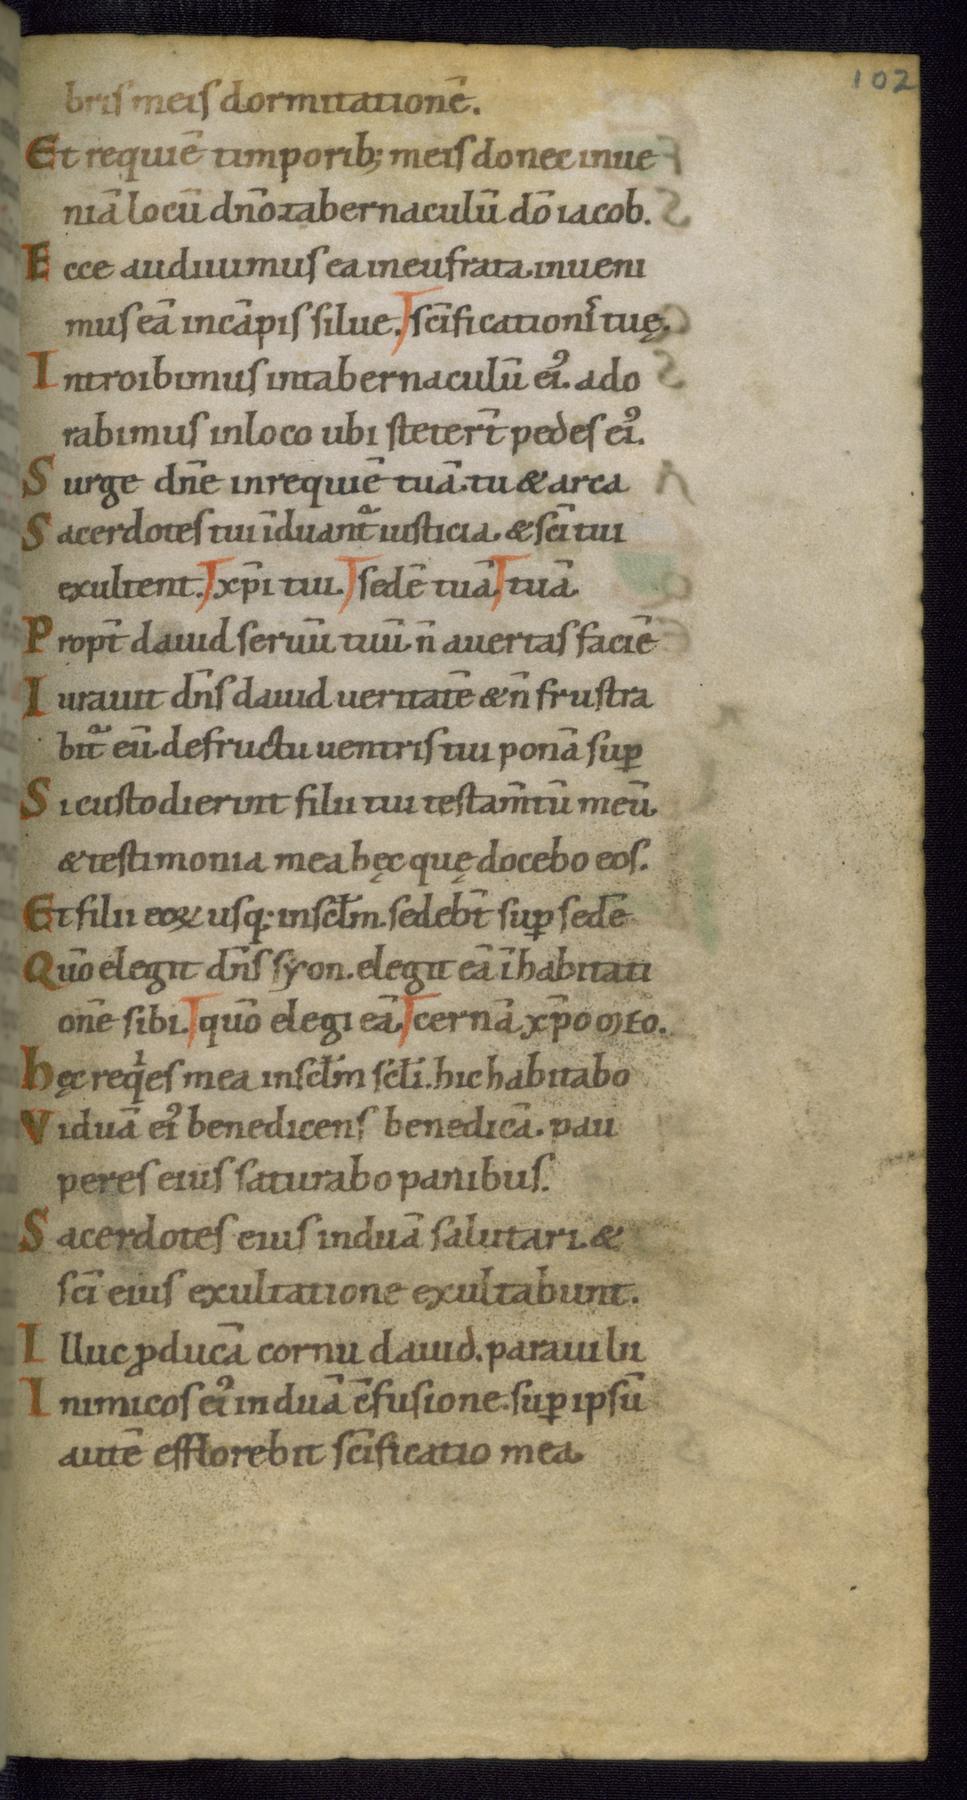 102
bris meis dormitationē.
Et requiē timporib; meis donec inue
niā locū dn̄o tabernaculū dō iacob.
Ecce audiuimus ea in eufrata inueni
mus eā in cāpis silue. sc̄ificationi tuę.
Introibimus in tabernaculū ei᾿. ado
rabimus in loco ubi stetert̄ pedes ei᾿.
Surge dn̄e in requiē tuā. tu & arca
Sacerdotes tui īduant iusticia. & sc̄i tui
exultent. xp̄i tui. sedē tuā. tuā.
Propt̄ dauid seruū tuū. n̄ auertas faciē
Iurauit dn̄s dauid ueritatē & n̄ frustra
bit eū. de fructu uentris tui ponā sup
Si custodierint filii tui testam̄tū meū.
& testimonia mea hęc quę docebo eos.
Et filii eoꝝ usq; in sc̄lm. sedebt̄ sup sedē
Qūo elegit dn̄s syon. elegit eā ī habitati
onē sibi. qūo elegi eā. cernā xp̄o m̄to.
hęc reqies mea in sclm̄ scl̄i. hic habitabo
Viduā ei᾿ benedicens benedicā. pau
peres eius saturabo panibus.
Sacerdotes eius induā salutari. &
sc̄i eius exultatione exultabunt.
Illuc ꝓducā cornu dauid. paraui lu
Inimicos ei᾿ induā c̄fusione. sup ipsū
autē efflorebit sc̄ificatio mea.